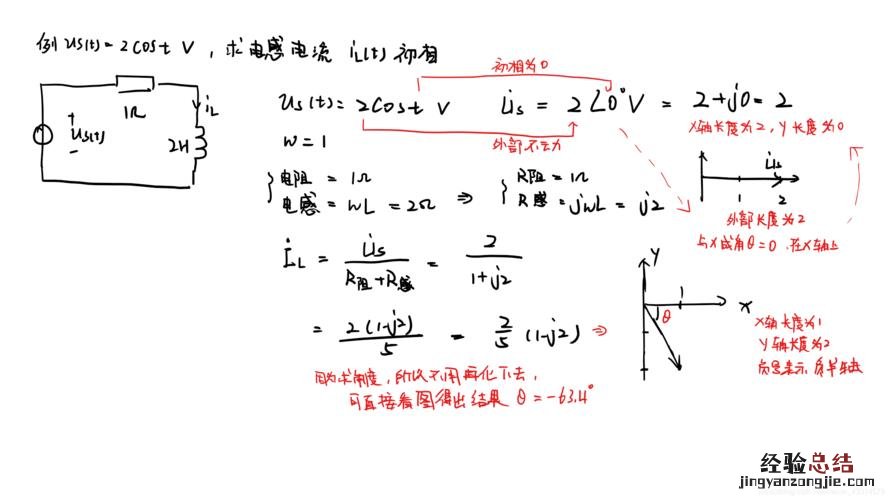 例 us(t)=2cost V ,求电感电流 iL(t) 初相
1Ω
iL
+
us(t)
-
2H
初相为0
us(t)=2cost V U̇s = 2∠0° V = 2+j0=2
外部不去力
x轴长度为2,y长度为0
w=1
U̇s
1 2
{电阻 = 1Ω
电感 = wL = 2Ω ⇒ {R阻=1Ω
R感=jwL = j2
外部长度为2
与x成角θ=0,在x轴上
İL = U̇s/(R阻+R感) = 2/(1+j2)
= 2(1-j2)/5 = 2/5 (1-j2) ⇒
y
1
x
θ
x轴长度为1
y轴长度为2
负号表示,负半轴
因为求角度,所以不用再化下去,
可直接看图得出结果 θ=-63.4°
经验总结
jingyanzongjie.com